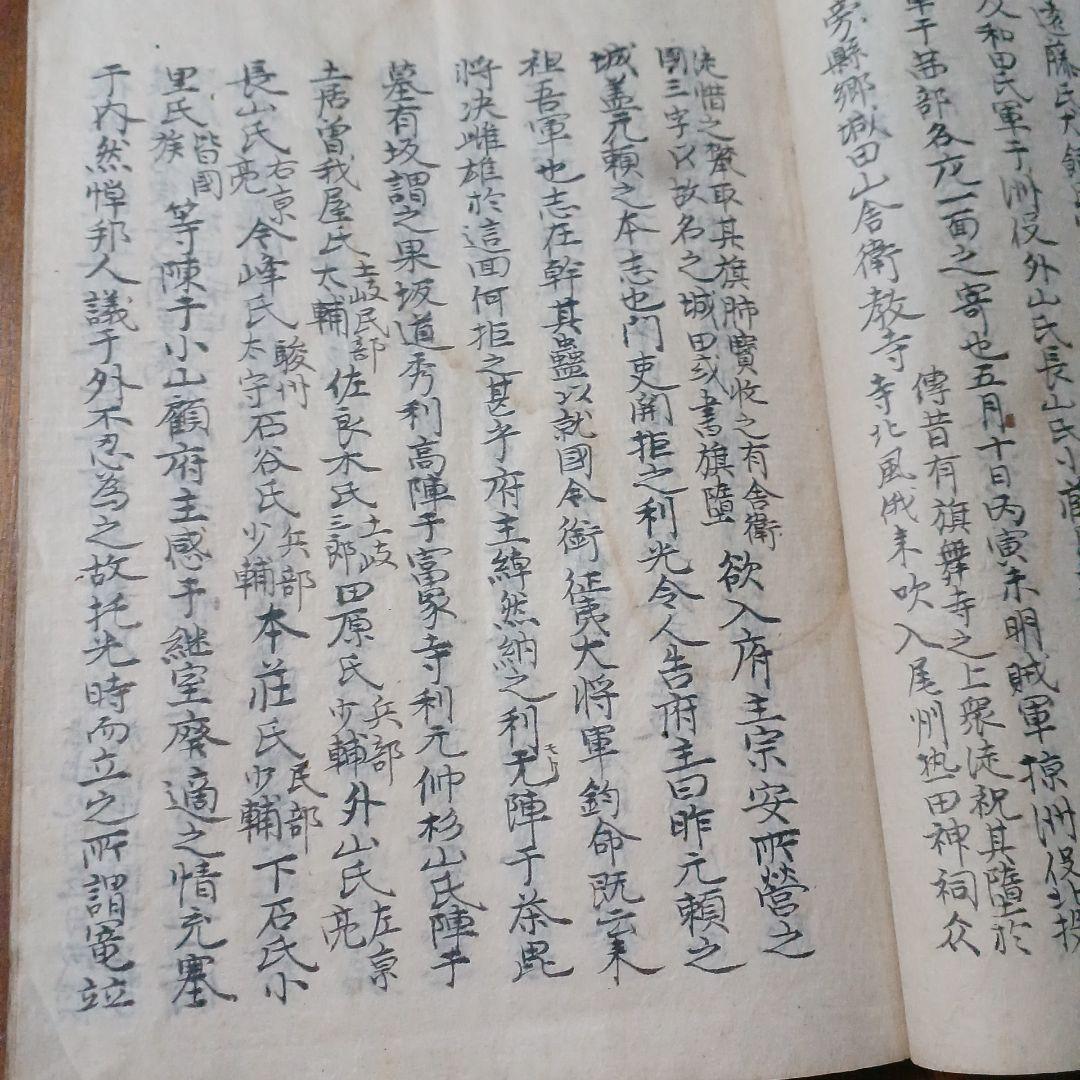 遠藤氏
及和田氏軍于洲俣外山氏長山氏小
軍于茜部各充一面之寄也五月十日丙寅未明賊軍掠洲俣北投
傳昔有旗舞寺之上衆徒祝其墮於
旁縣郷城田山舎衛教寺
寺北風俄来吹入尾州熱田神祠众
徒惜之発取其旗肺臓收之有舎衛
國三字以故名之城田或書旗墮
欲入府主宗安所營之
城盖元頼之本志也門吏開拒之利光令人告府主曰昨元頼之
祖吾軍也志在幹其蠱以就國令銜征夷大将軍鈞命既云来
将决雌雄於這面何拒之甚乎府主緯然納之利元モト陣于茶毘
墓有坂謂之果坂道秀利高陣于富家寺利元仲杉山氏陣于
土居曽我屋氏土岐民部大輔佐良木氏土岐三郎田原氏兵部少輔外山氏左京亮
長山氏右京亮今峰氏駿州太守石谷氏兵部少輔本莊氏民部少輔下石氏小
里氏皆國族等陳于小山顧府主感乎継室廃適之情充塞
于内然憚邦人議于外不忍為之故托光時而立之所謂竃竝